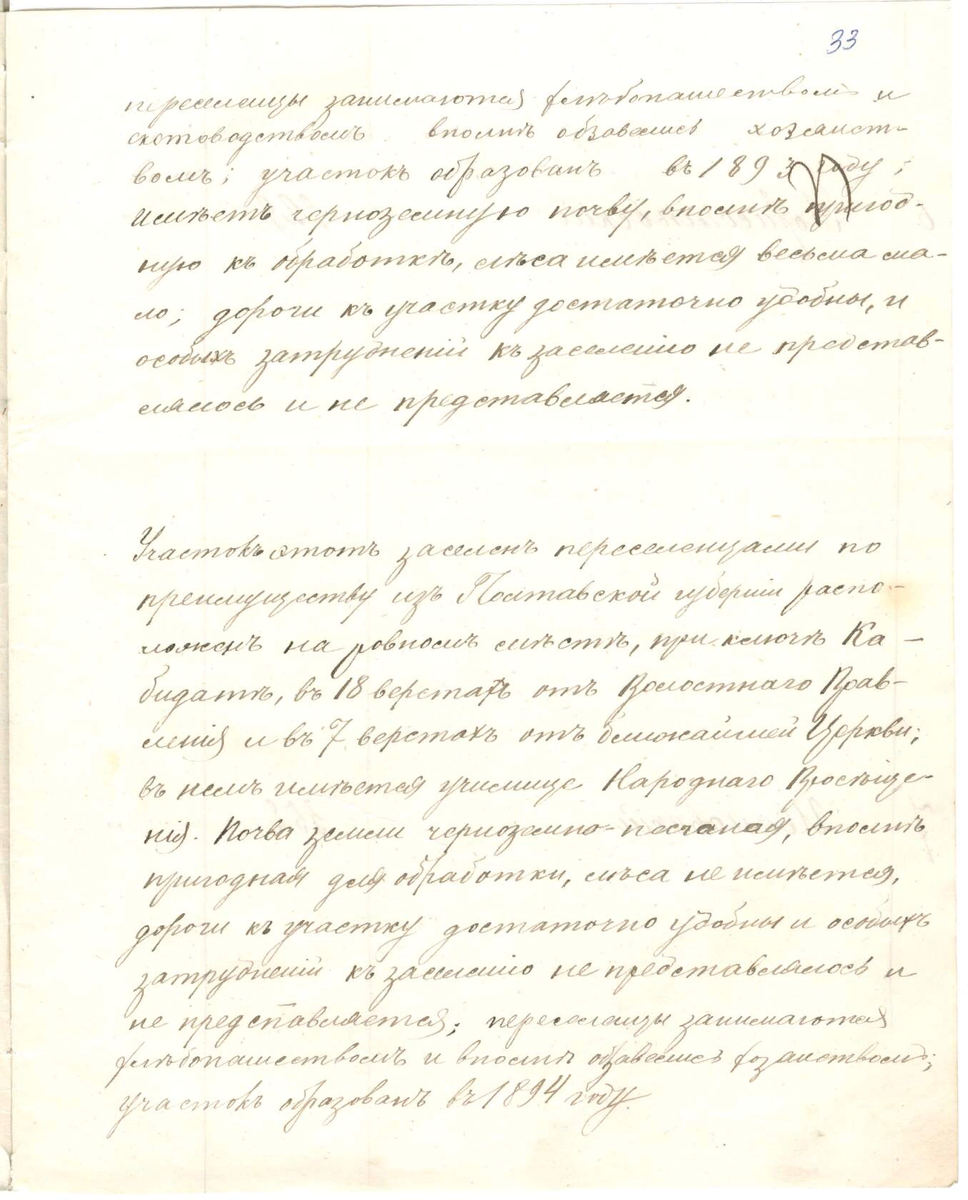 33
переселенцы занимаются хлѣбопашествомъ и
скотоводствомъ вполнѣ обзавелись хозяист-
вомъ; участокъ образованъ въ 1893 году;
имѣетъ черноземную почву, вполнѣ пригод-
ную къ обработкѣ, лѣса имѣется весьма ма-
ло; дороги къ участку достаточно удобны, и
особыхъ затрудненій къ заселенію не представ-
лялось и не представляется.
Участокъ этотъ заселенъ переселенцами по
преимуществу изъ Полтавской губерніи распо-
ложенъ на ровномъ мѣстѣ, при ключѣ Ка-
бидатѣ, въ 18 верстахъ отъ Волостнаго Прав-
ленія и въ 7 верстахъ отъ ближайшей Церкви;
въ немъ имѣется училище Народнаго Просвѣще-
нія. Почва земли черноземно-песчаная, вполнѣ
пригодная для обработки, лѣса не имѣется,
дороги къ участку достаточно удобны и особыхъ
затрудненій къ заселенію не представлялось и
не представляется; переселенцы занимаются
хлѣбопашествомъ и вполнѣ обзавелись хозяиствомъ;
участокъ образованъ въ 1894 году.